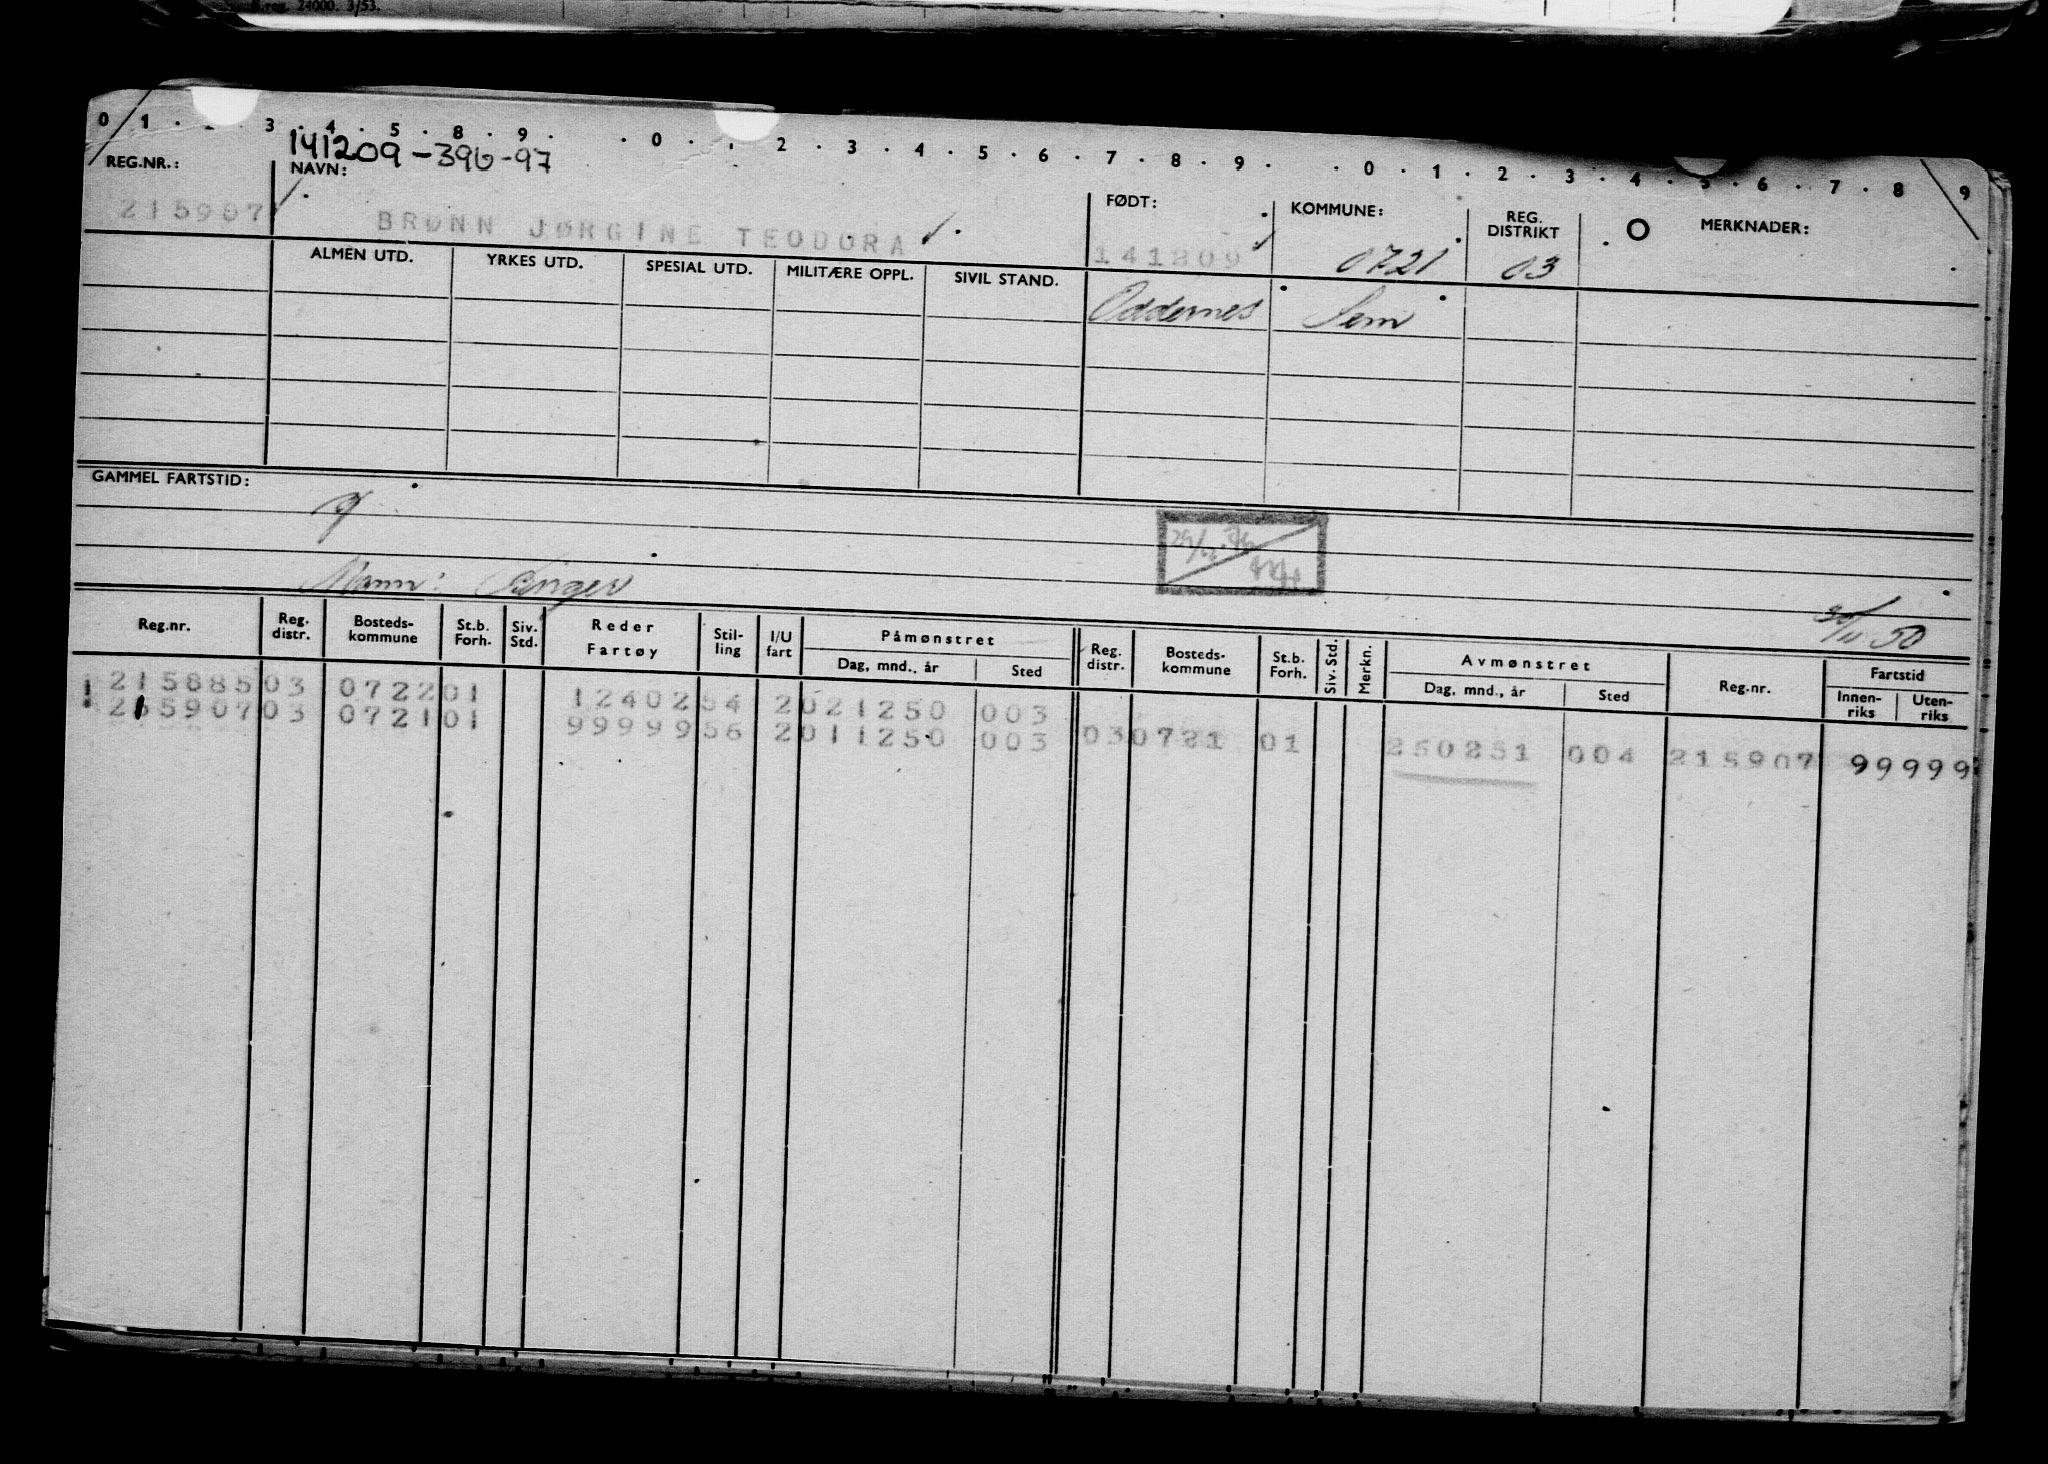 B.reg. 24000. 3/53.
0 1 . . 3 . 4 . 5 . 8 . 9 . . 0 . . 2 . 3 . 4 . 5 . 6 . 7 . 8 . 9 . . 0 . 1 . 2 . 3 . 4 . 5 . 6 . 7 . 8 . 9
141209-396-97
REG.NR.: NAVN: FØDT: KOMMUNE: REG. DISTRIKT MERKNADER:
215907 BRØNN JØRGINE TEODORA 141209 0721 03
ALMEN UTD. YRKES UTD. SPESIAL UTD. MILITÆRE OPPL. SIVIL STAND.
Oddernes Sem
GAMMEL FARTSTID:
Mann: Inger
30/11 50
Reg.nr. Reg. distr. Bosteds-kommune St.b. Forh. Siv. Std. Reder Fartøy Stil-ling I/U fart Påmønstret Reg. distr. Bosteds-kommune St.b. Forh. Siv. Std. Merkn. Avmønstret Reg.nr. Fartstid
Dag, mnd., år Sted Dag, mnd., år Sted Innen-riks Uten-riks
215885 03 0722 01 12402 54 2 021250 003
215907 03 0721 01 99999 56 2 011250 003 03 0721 01 250251 004 215907 99999